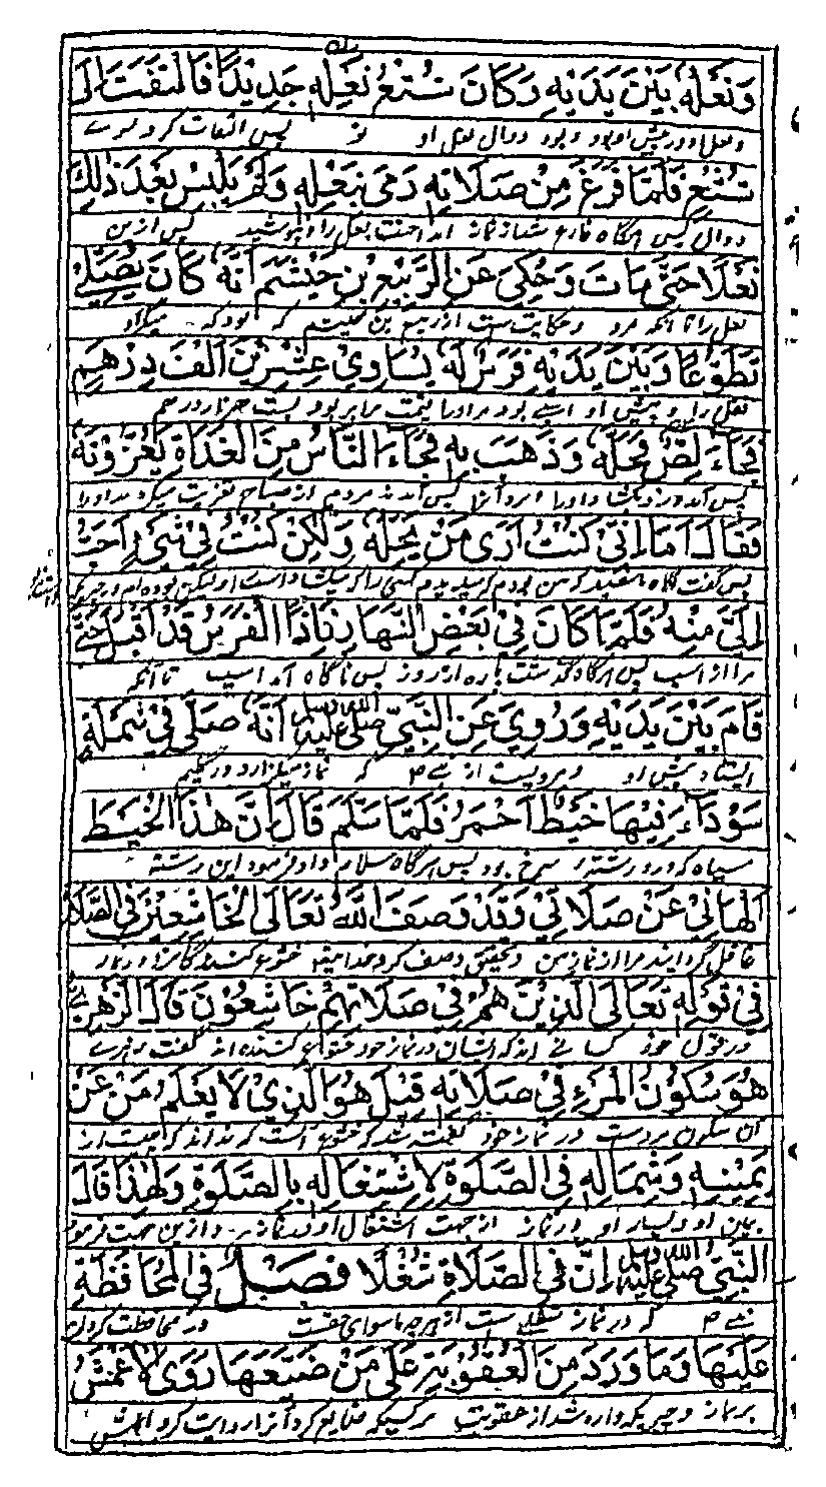 وَنَعْلُهُ بَيْنَ يَدَيْهِ وَكَانَ شُسْعُ نَعْلِهِ جَدِيدًا فَالْتَفَتَ اِلَى
ونعل او در پیش او بود و بود دوال نعل او نو پس التفات کرد بسوے
شُسْعٍ فَلَمَّا فَرَغَ مِنْ صَلَاتِهِ رَمَى نَعْلَهُ وَلَمْ يَلْبِسْ بَعْدَ ذٰلِكَ
دوال پس هرگاه فارغ شد از نماز انداخت نعل را و نپوشید پس ازین
نَعْلًا حَتّٰى مَاتَ وَحُكِيَ عَنِ الرَّبِيْعِ بْنِ خَيْثَمَ اَنَّهُ كَانَ يُصَلِّيْ
نعل را تا آنکه مرد و حکایت ست از ربیع بن خیثم که بود که میگزارد
تَطَوُّعًا وَبَيْنَ يَدَيْهِ فَرَسٌ لَهُ يُسَاوِيْ عِشْرِيْنَ اَلْفَ دِرْهَمٍ
نفل را و پیش او اسپے بود مر او را قیمت برابر بود بست هزار درهم
فَجَاءَ لِصٌّ فَحَلَّهُ وَذَهَبَ بِهِ فَجَاءَ النَّاسُ مِنَ الْغَدَاةِ يُعَزُّوْنَهُ
پس آمد دزد و بکشاد او را و برد آنرا پس آمدند مردم از صباح تعزیت میکردند او را
فَقَالَ اَمَا اِنِّيْ كُنْتُ اَرٰى مَنْ يَحُلُّهُ وَلٰكِنْ كُنْتُ فِيْ شَيْءٍ اَحَبَّ
پس گفت آگاه باشید که من بودم که میدیدم کسی را که میکشاد است او لیکن بوده ام در چیزی
اِلَيَّ مِنْهُ فَلَمَّا كَانَ فِيْ بَعْضِ النَّهَارِ فَاِذَا الْفَرَسُ قَدْ اَقْبَلَ حَتّٰى
مرا از اسپ پس هرگاه گذشت پاره از روز پس ناگاه آمد اسپ تا آنکه
قَامَ بَيْنَ يَدَيْهِ وَرُوِيَ عَنِ النَّبِيِّ صَلَّى اللهُ عَلَيْهِ وَسَلَّمَ اَنَّهُ صَلّٰى فِيْ شَمْلَةٍ
ایستاد پیش او و مرویست از نبے ص که نماز میگزارد در گلیم
سَوْدَاءَ فِيْهَا خَيْطٌ اَحْمَرُ فَلَمَّا سَلَّمَ قَالَ اِنَّ هٰذَا الْخَيْطَ
سیاه که در و رشته سرخ بود پس هرگاه سلام داد فرمود این رشته
اَلْهَانِيْ عَنْ صَلَاتِيْ وَقَدْ وَصَفَ اللهُ تَعَالَى الْخَاشِعِيْنَ فِي الصَّلَاةِ
غافل گردانید مرا از نماز من و تحقیق وصف کرد خدایتعالی خشوع کنندگان را در نماز
فِيْ قَوْلِهِ تَعَالَى الَّذِيْنَ هُمْ فِيْ صَلَاتِهِمْ خَاشِعُوْنَ قَالَ الزُّهْرِيُّ
در قول خود کسانے اند که ایشان در نماز خود خشوع کننده اند گفت زهرے
هُوَ سُكُوْنُ الْمَرْءِ فِيْ صَلَاتِهِ قِيْلَ هُوَ الَّذِيْ لَا يَعْلَمُ مَنْ عَنْ
آن سکون مردست در نماز خود گفته شد که خشوع آنست که نداند که کیست از
يَمِيْنِهِ وَشِمَالِهِ فِي الصَّلٰوةِ لِاشْتِغَالِهِ بِالصَّلٰوةِ وَلِهٰذَا قَالَ
یمین او و یسار او در نماز از جهت اشتغال او در نماز و ازین جهت فرمود
النَّبِيُّ صَلَّى اللهُ عَلَيْهِ وَسَلَّمَ اِنَّ فِي الصَّلَاةِ شُغْلًا فَصْلٌ فِي الْمُحَافَظَةِ
نبے ص که در نماز شغلے ست از هرچه ماسوای حقست در محافظت کردن
عَلَيْهَا وَمَا وَرَدَ مِنَ الْعُقُوْبَةِ عَلٰى مَنْ ضَيَّعَهَا رَوَى الْاَعْمَشُ
بر نماز و چیزیکه وارد شد از عقوبت بر کسیکه ضایع کرد آنرا روایت کرد اعمش